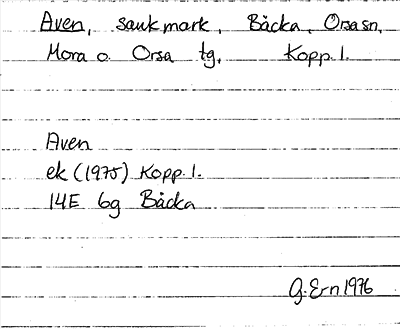 Aven, sankmark, Bäcka, Orsa sn,
Mora o. Orsa tg, Kopp. l.
Aven
ek (1975) Kopp. l.
14E 6g Bäcka
G. Ern 1976